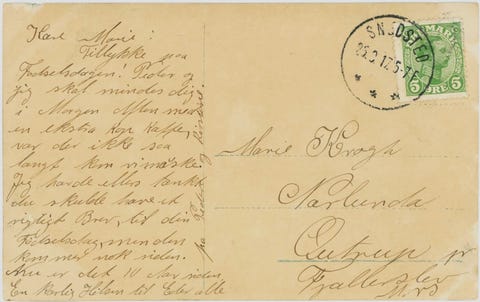 Kære Marie!
Tillykke paa
Fødselsdagen! Peder og
jeg skal mindes dig
i Morgen Aften med
en ekstra Kop Kaffe,
var der ikke saa
langt kom vi måske.
Jeg havde ellers tænkt
du skulde have et
rigtigt Brev, til din
Fødselsdag, men den
kommer nok siden.
Nu er det 10 Aar siden
En kærlig Hilsen til Eder alle
fra Peder og
SNEDSTED
25.3.17.5-7E
DANMARK
5 ØRE 5
Marie Krogh
Nørlunda
Outrup pr